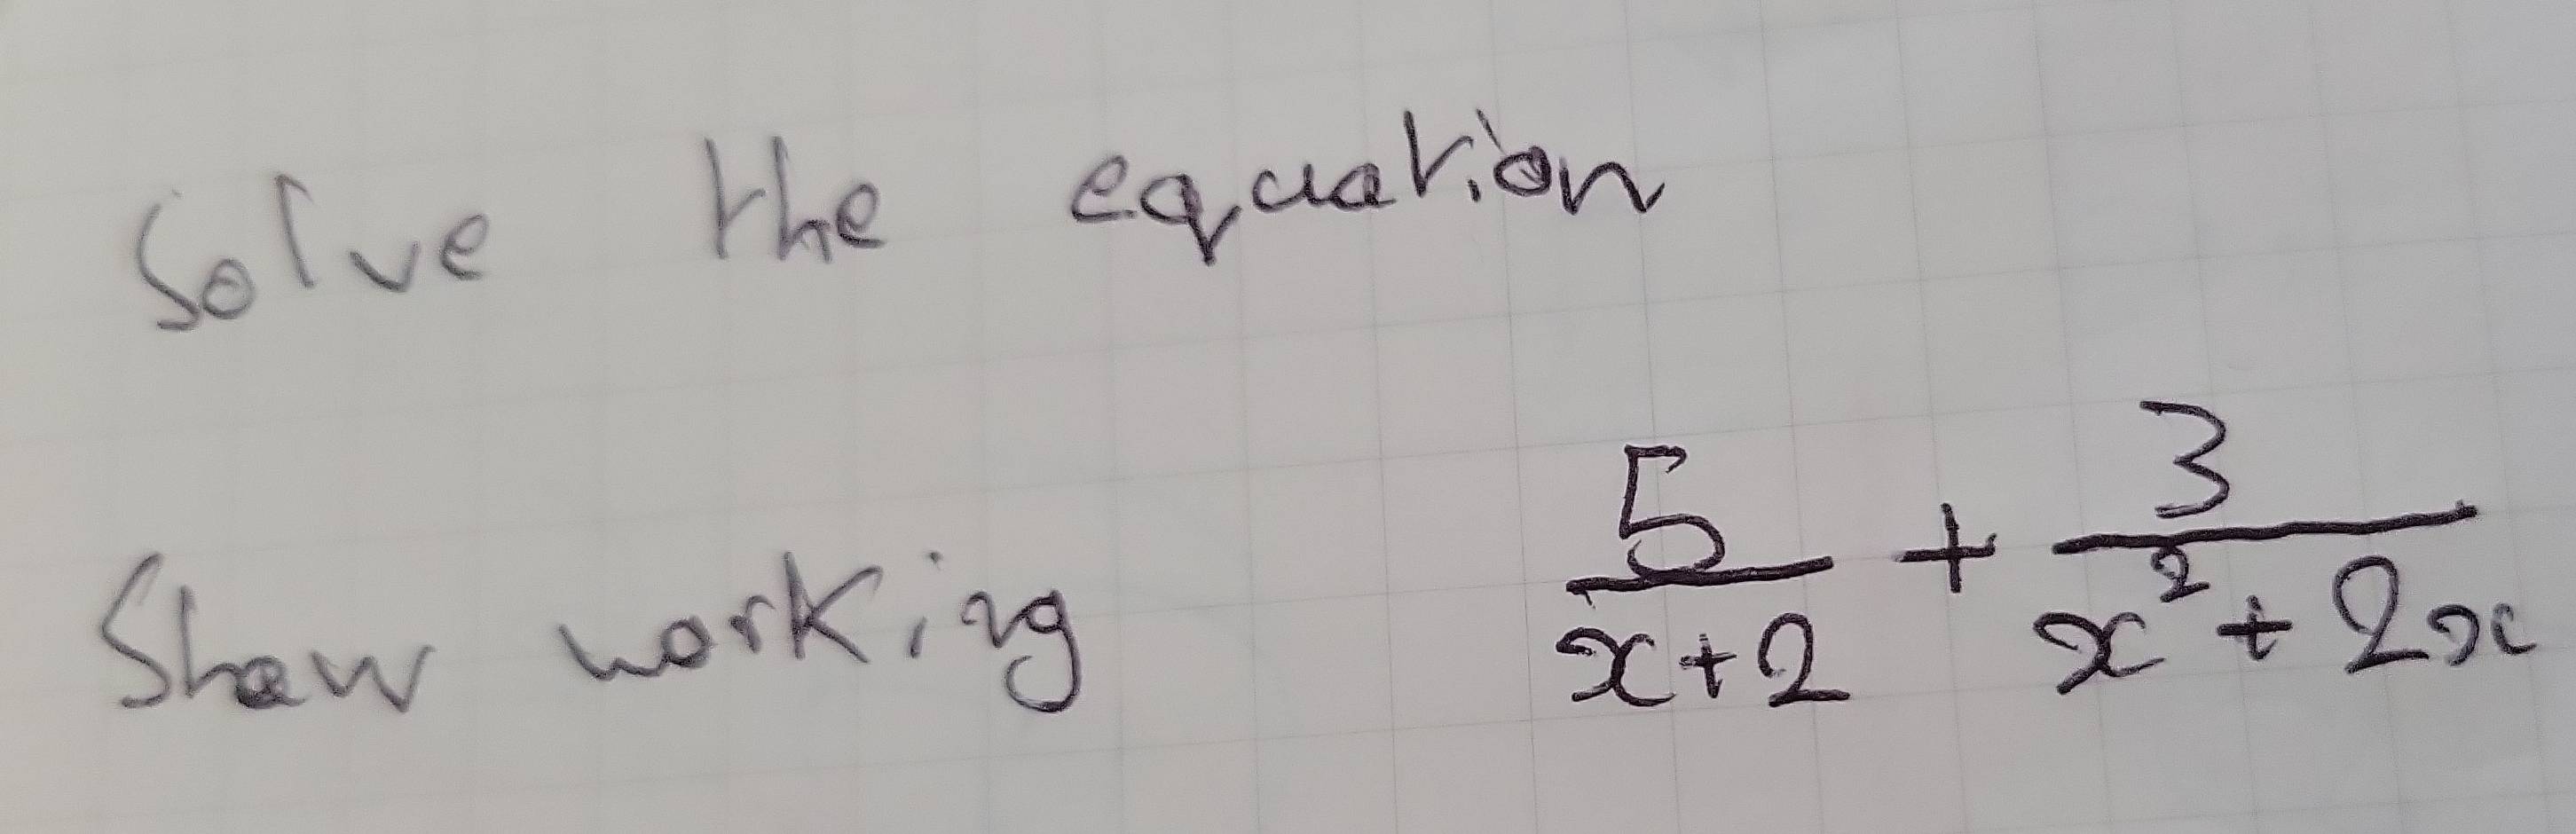 Solve the equation
Show working 5/(x+2) + 3/(x²+2x)